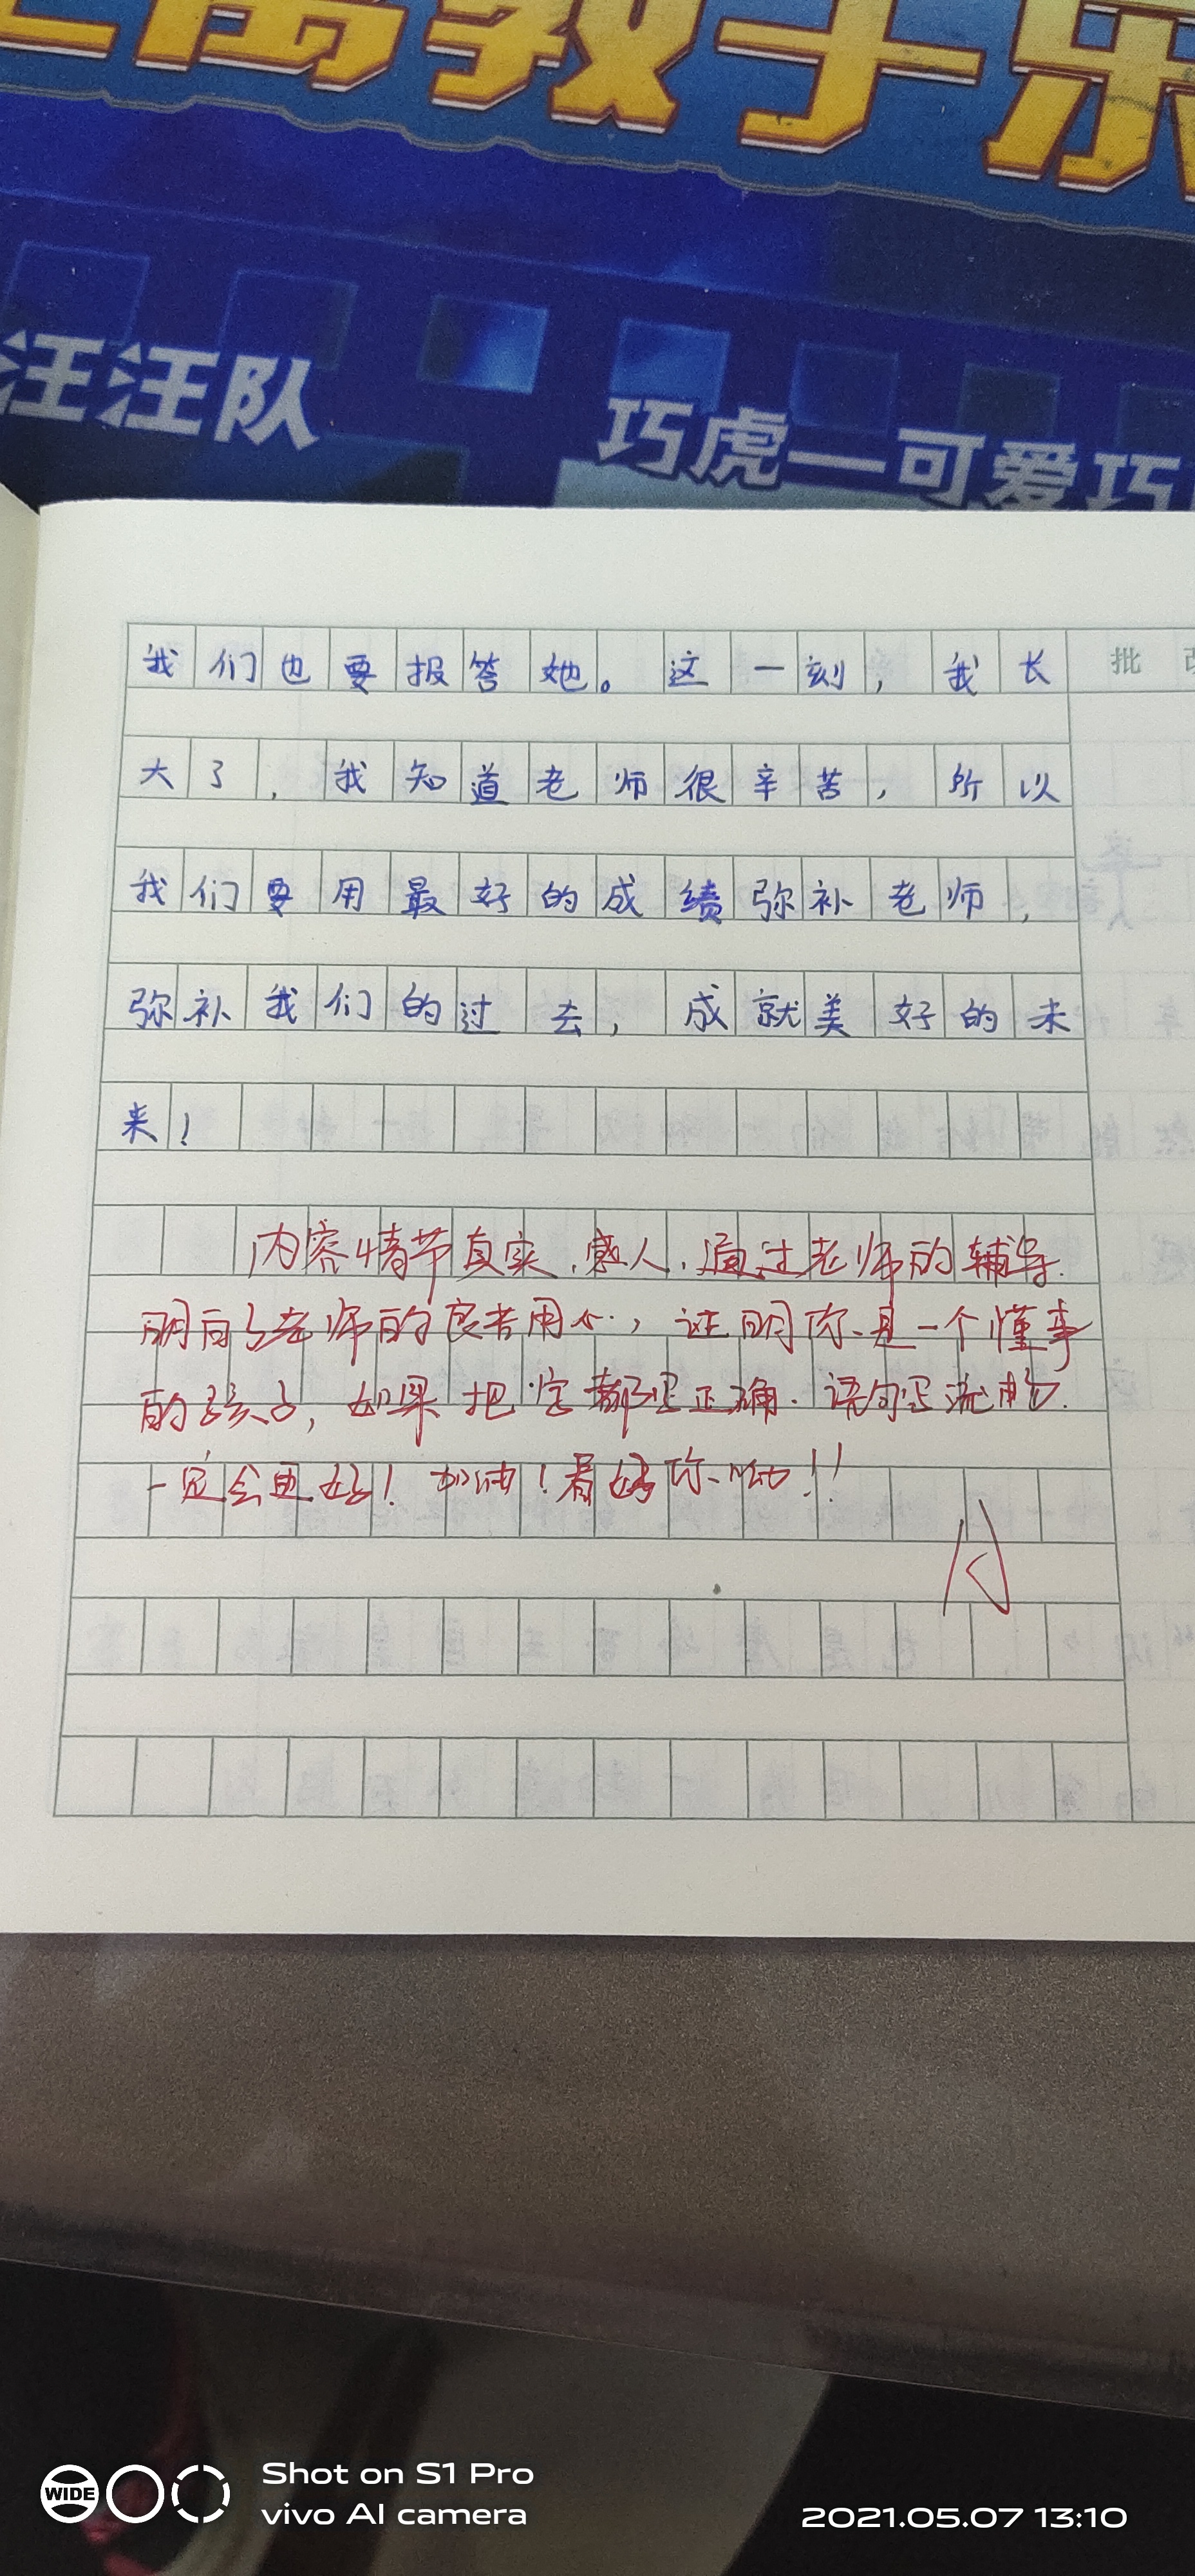 寓教于乐
汪汪队
巧虎—可爱巧
批
我们也要报答她。这一刻，我长
大了，我知道老师很辛苦，所以
我们要用最好的成绩弥补老师，
弥补我们的过去，成就美好的未
来！
内容情节真实，感人，通过老师的辅导.
明白了老师的良苦用心，证明你是一个懂事
的孩子，如果把字都写正确.语句写流畅.
一定会更好！加油！看好你呦！！
A
WIDE
Shot on S1 Pro
vivo AI camera
2021.05.07 13:10